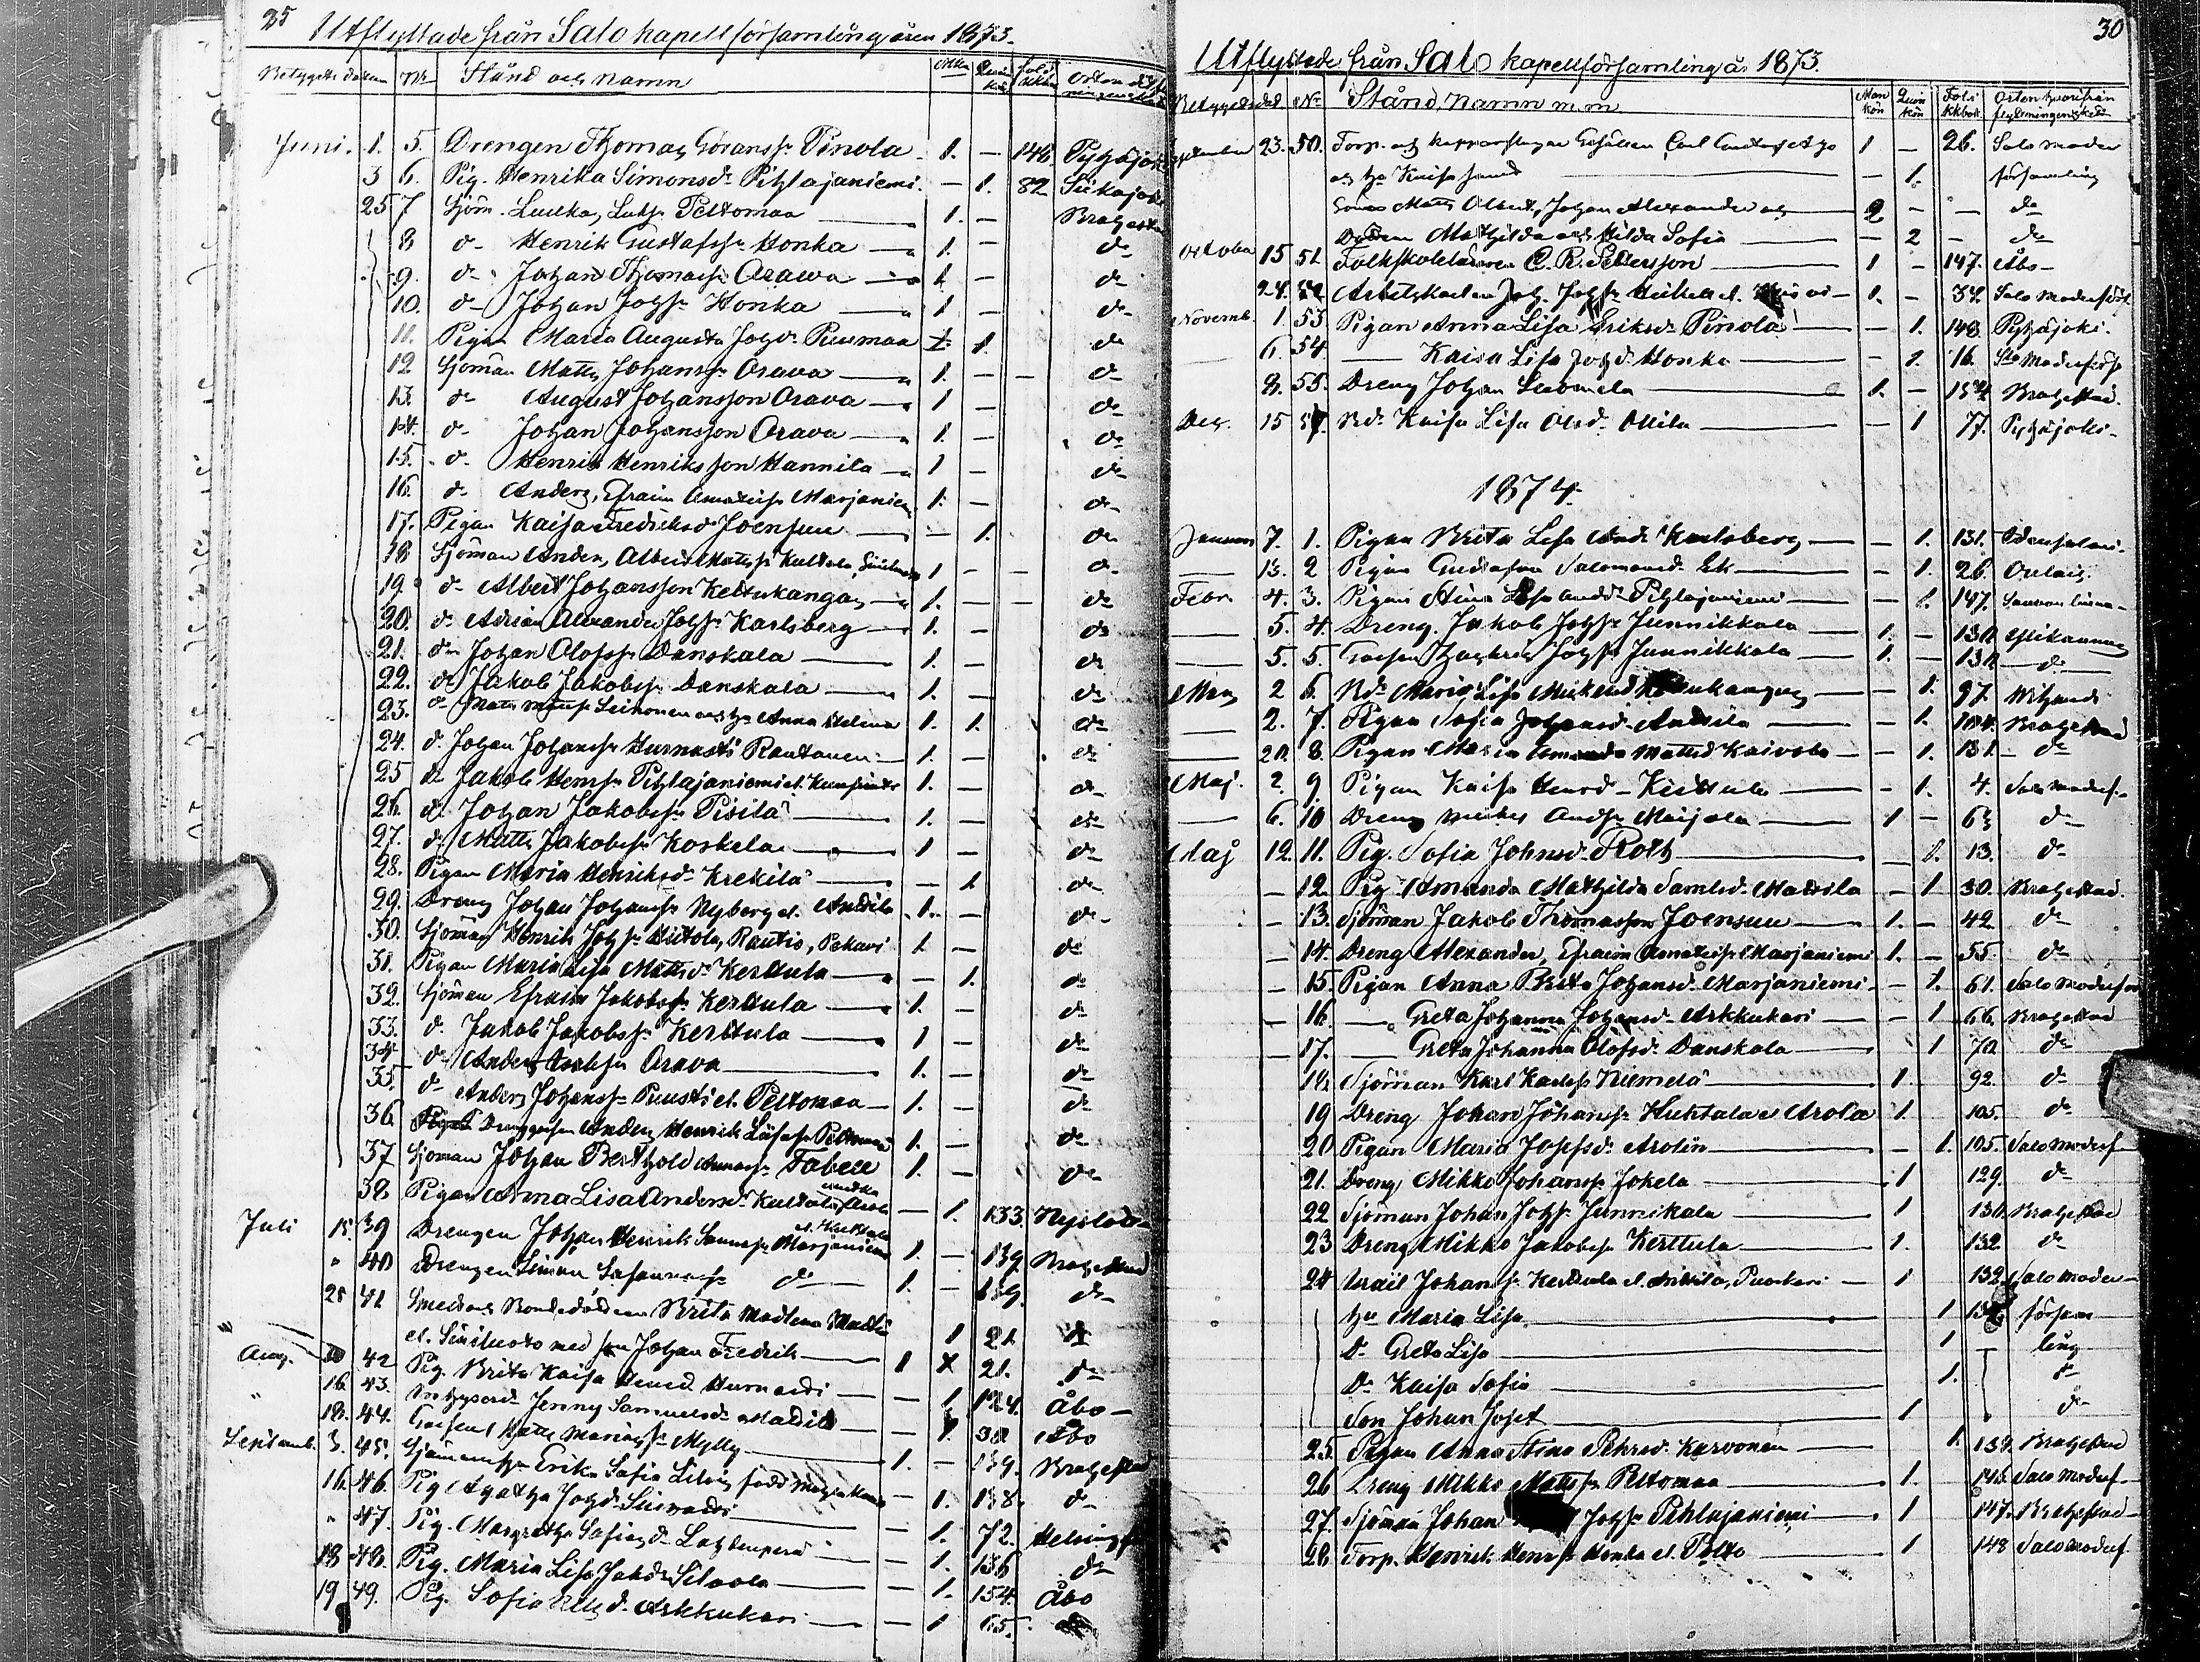 25
Utflyttade från Salo kapellförsamling åren 1873.
Betygets datum Nr Stånd och namn
Juni. 1. 5. Drengen Thomas Göranss. Pinola 1. — 146 Pyhäjok
3 6. Pig. Henrika Simonsd. Pihlajaniemi. — 1. 82 Siikajok
25 7 Sjöm. Peltomaa 1. — Brahesta
8 do Henrik Gustafss. Honka 1. — do
9. do Johan Thomass. Orawa 1 — do
10. do Johan Johss. Honka 1 — do
11. Pigan Maria Augusta Johd. Puusmaa 1. do
12 Sjöman Matts Johanss. Orava 1. — — do
13 do August Johansson Orava 1 — do
14. do Johan Johansson Orava 1. — do
15. do Henrik Henriksson Hannila 1 — do
16. do Anders Efraim Marjaniem 1. — do
17. Pigan Kaisa Fredriksd. Joensuu — 1. do
18 Sjöman Anders Albert Mattss. Kultala 1 — — do
19. do Albert Johansson Keltukangas 1. — — do
20. do Adrian Alexander Johss. Karlsberg 1. — do
21. do Johan Olofss. Danskala 1. — do
22. do Jakob Jakobss. Danskala 1. — do
23. do Matts Leinonen och hu Anna Helena 1. 1. do
24. d. Johan Johanss. Hurnasti Rautanen 1 — do
25 do Jakob Henrss. Pihlajaniemi el. 1. — do
26. d. Johan Jakobss. Pisilä 1. — do
27. d. Matts Jakobss. Koskela 1 — do
28. Pigan Maria Henriksd. Krekilä — 1 do
29. Dreng Johan Johanss. Nyberg el. Anttila 1. — do
30. Sjöman Henrik Johss. Hietola, Rautio, Pekari 1 — do
31. Pigan Maria Lisa Mattsd. Kerttula — 1. do
32. Sjöman Efraim Jakobss. Kerttula 1. — do
33. d. Jakob Jakobss. Kerttula 1 — do
34 do Anders Orava 1. — do
35. do Anders Johanss. Puusti el. Peltomaa 1. — do
36. Drenggossen Anders Henrik Peltomaa 1. — do
37 Sjöman Johan Berthold Fabell 1. — do
38 Pigan Anna Lisa Andersd. Kultala — 1. 133. Nykarleb
Juli 15. 39 Drengen Johan Henrik Marjaniemi 1. — 139. Brahestad
" 40 Drengen Simon do 1. — 139. do
28 41 Brita Madlena Mattila
el. Siniluoto med son Johan Fredrik 1 21 do
Aug. 42 Pig. Brita Kaisa Henrd. Hurnasti 1 X 21. do
16. 43. Jenny Samuelsd. Mattila — 1 124. Åbo
" 18. 44. Gossen Matts Mylly — 1 30 Åbo
Septemb. 3. 45. Erika Sofia 1. — 139. Brahestad
16. 46. Pig Agatha Johd. — 1. 138. d.
" 47. Pig. Margretha Sofia — 1. 72. Helsingf
18 48. Pig. Maria Lisa Jakd. — 1. 136 do
19 49. Pig. Sofia Arkkukari — 1 65. Åbo
30
Utflyttade från Salo kapellförsamling år 1873.
Betygets dat Nr Stånd, Namn m.m Man kön Qvin kön Foli kkbok Orten hvarifrån flyttningen skett
September 23. 50. Torp. 1 — 26. Salo moder
och hu Kaisa — 1. församling
Söner Matts Albert, Johan Alexander och 2 — — do
Mathilda och Hilda Sofia — 2 — do
Octobe 15 51 Folkskoleläraren C. R. Pettersson 1 — 147. Åbo
24. 52 Joh. Johss. 1. — 32 Salo moderförs
Novemb. 1. 53 Pigan Anna Lisa Eriksd. Pinola — 1. 148 Pyhäjoki.
6. 54 — Kaisa Lisa Johd. Honka — 1. 16. Slo Moderförs
8. 55. Dreng Johan 1. — 152 Brahestad.
Dec. 15 57. Bd. Kaisa Lisa Olsd. Ollila — 1 77. Pyhäjoki
1874
Januari 7. 1. Pigan Brita Lisa Andd. Karlsberg — 1. 131. Temmes
— 13. 2 Pigan Gustava Salomonsd. Ek — 1. 26. Oulais.
Febr. 4. 3. Pigan Stina Lisa Andd. Pihlajaniemi — 1. 147.
— 5. 4. Dreng. Jakob Johss. Junnikkala 1. — 130
— 5. 5. Gossen Zachris Johss. Junnikkala 1. — 130 do
Mars 2 6. Bd. Maria Lisa — 1. 97. Wihandi
— 2. 7. Pigan Sofia Johansd. Anttila — 1. 104. Brahestad
— 20. 8. Pigan Maria Amanda Mattsd. Kaivola — 1. 131. do
Maj. 2. 9. Pigan Kaisa Henrd. Kerttula — 1. 4. Salo moderf.
— 6. 10 Dreng Mickel Andss. Maijala 1 — 63 do
Maj 12. 11. Pig. Sofia Johnsd. Roth — 1. 13. do
— 12. Pig. Amanda Mathilda Samlsd. Mattila — 1. 30. Brahestad.
— 13. Sjöman Jakob Thomasson Joensuu 1. — 42. do
— 14. Dreng Alexander Efraim Marjaniemi 1. — 55. do
— 15. Pigan Anna Brita Johansd. Marjaniemi — 1. 61. Salo moderför
— 16. — Greta Johanna Johansd. Arkkukari — 1. 66. Brahestad
— 17. — Greta Johanna Olofsd. Danskala 1 70. do
18. Sjöman Karl Karlss. Niemelä 1. 92. do
19 Dreng Johan Johanss. Huhtala el Arola 1. 105. do
20 Pigan Maria Josefsd. Arolin — 1. 105. Salo Moderf
21. Dreng Mikko Johanss. Jokela 1 129. do
22 Sjöman Johan Johss. Junnikala 1 130. Brahestad
23 Dreng Mikko Jakobss. Kerttula 1. 132 do
24 Israil Johanss. Kerttula el. Mikkila, Puorkari 1 132. Salo moder
hu Maria Lisa 1 132 försam
Dr. Greta Lisa 1 ling
Dr Kaisa Sofia 1. do
Son Johan Josef 1 do
25. Pigan Anna Stina Pehrsd. Karvonen 1. 139. Brahestad
26 Dreng Mikko Mattss. Peltomaa 1. 145. Salo moderf
27. Sjöman Johan Johss. Pihlajaniemi 1 147. Brahestad
28. Torp. Henrik Henrss. Honka el. Pelto 1 148 Salo Moderf.